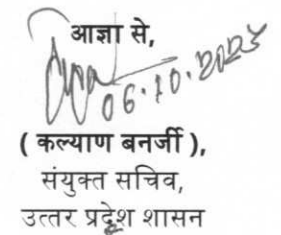 आज्ञा से,
06.10.2023
( कल्याण बनर्जी ),
संयुक्त सचिव,
उत्तर प्रदेश शासन